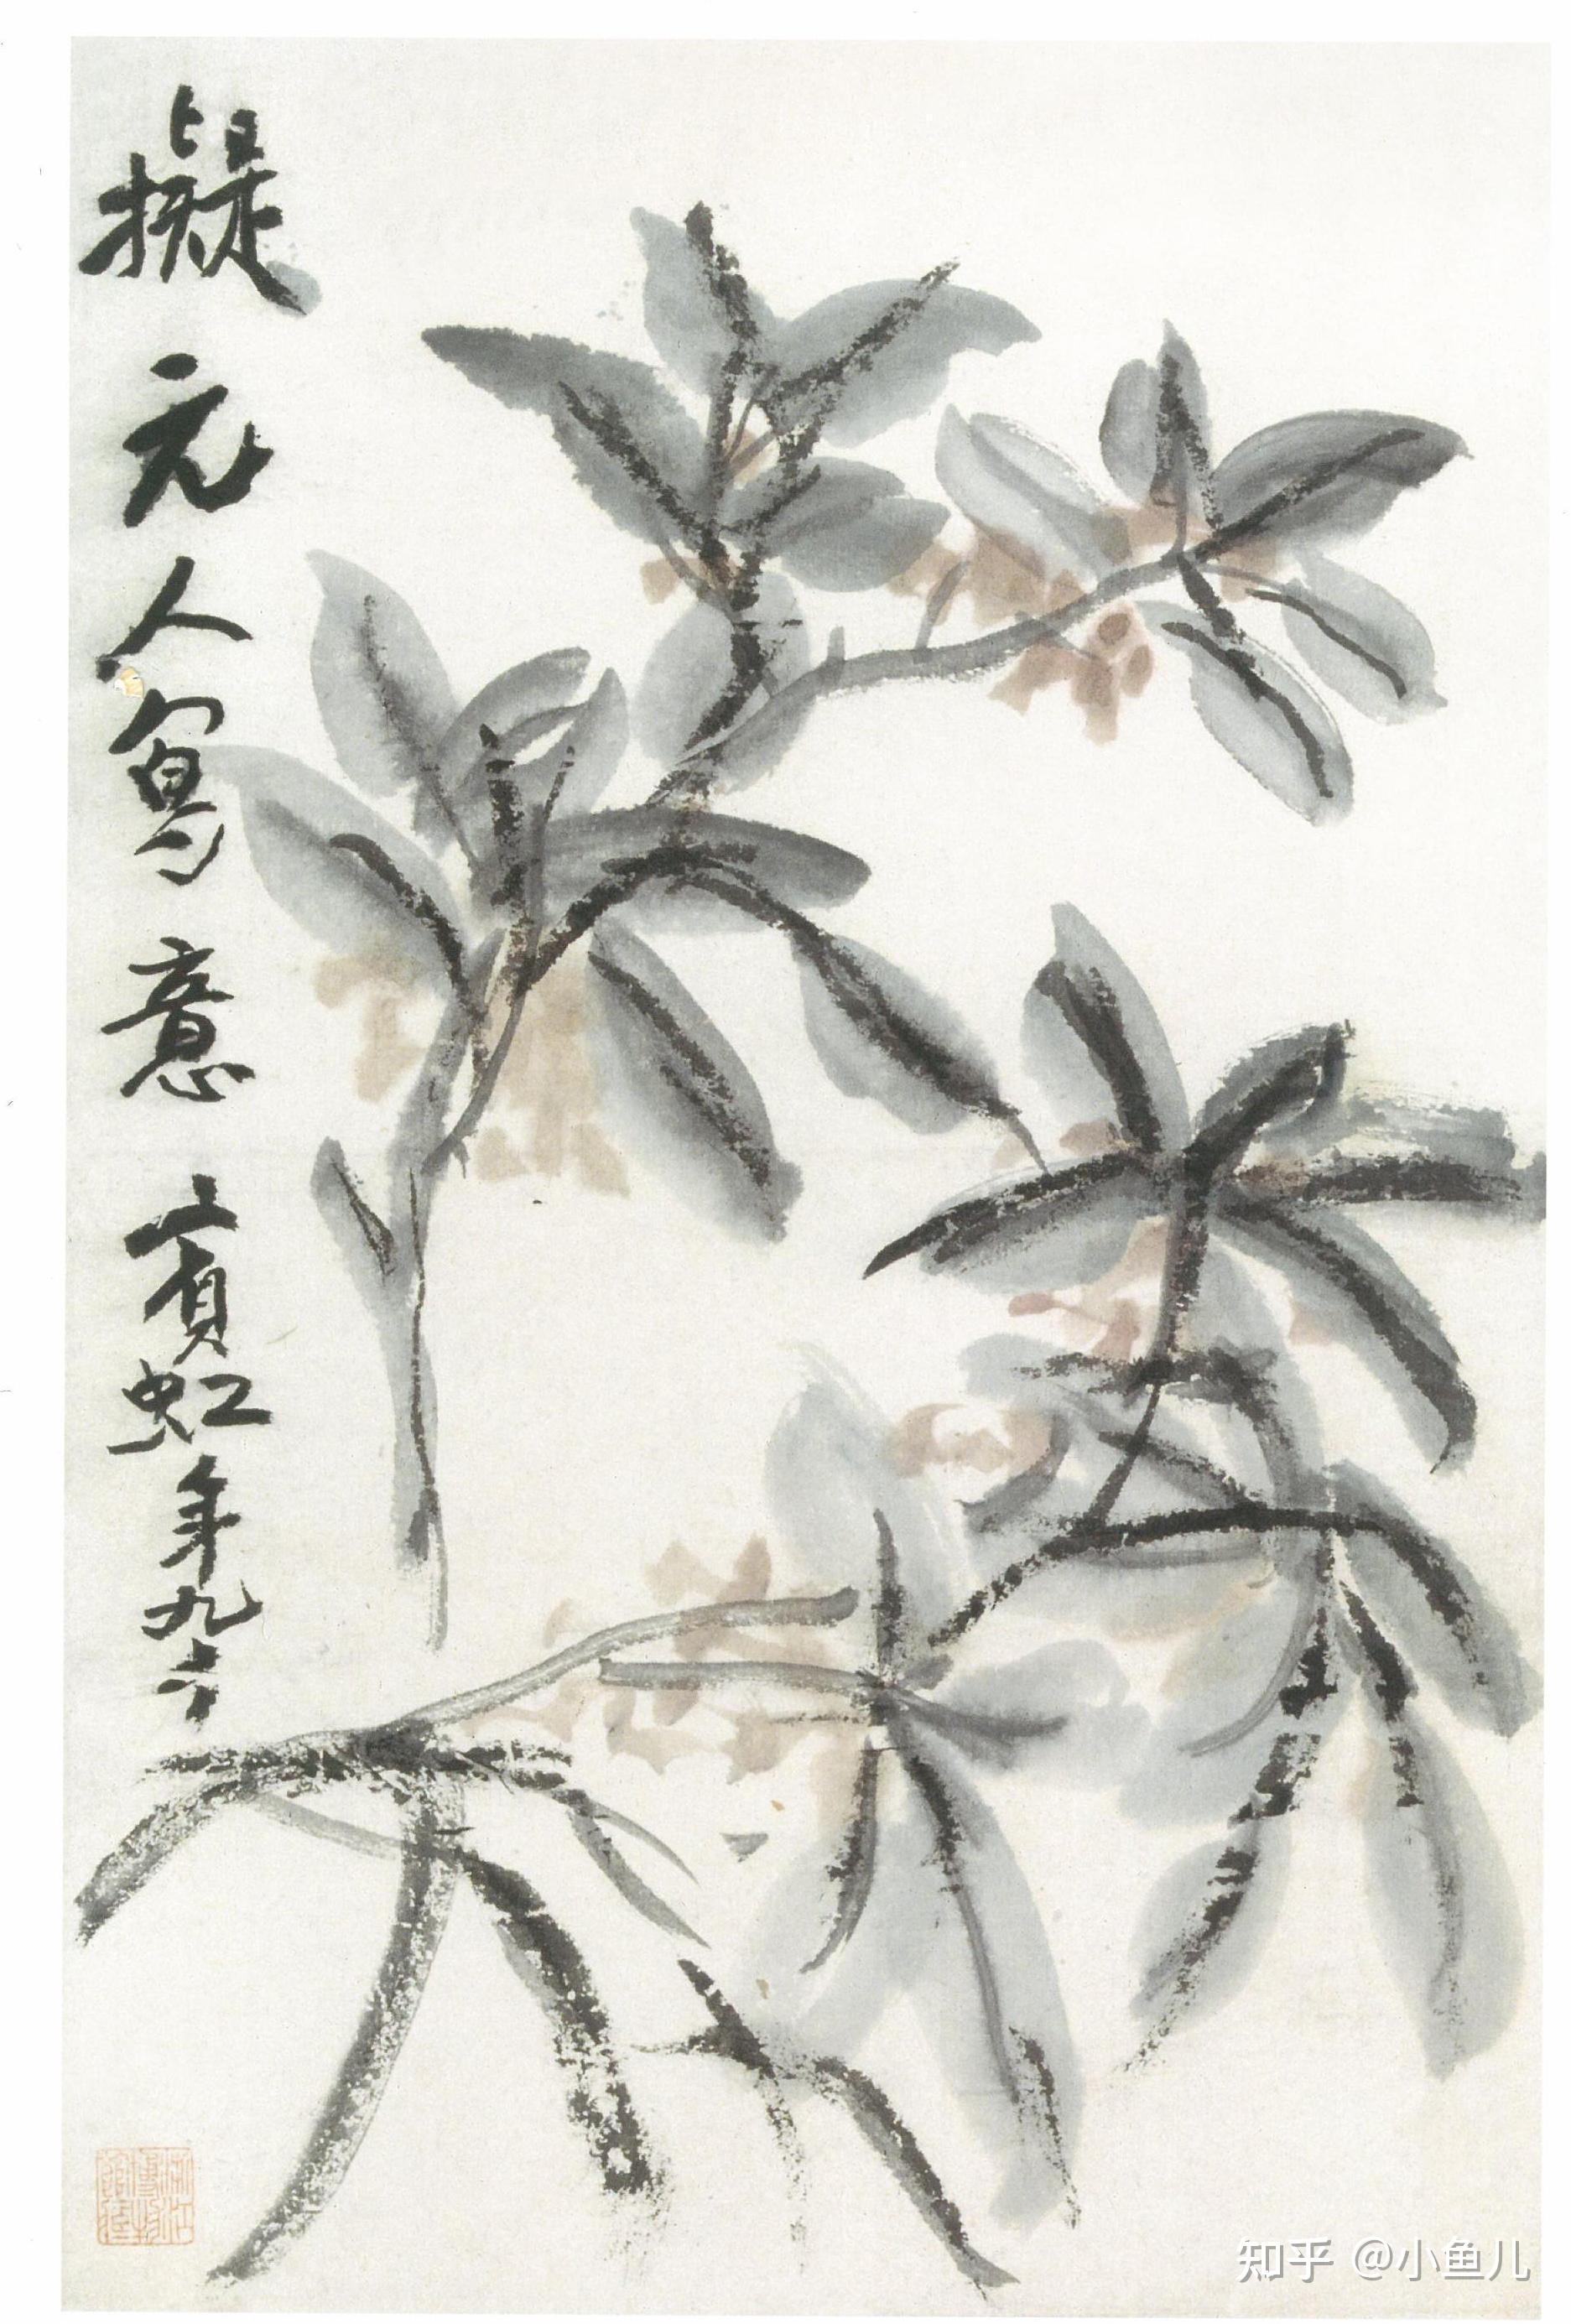 擬元人寫意 賓虹年九十
知乎 @小鱼儿